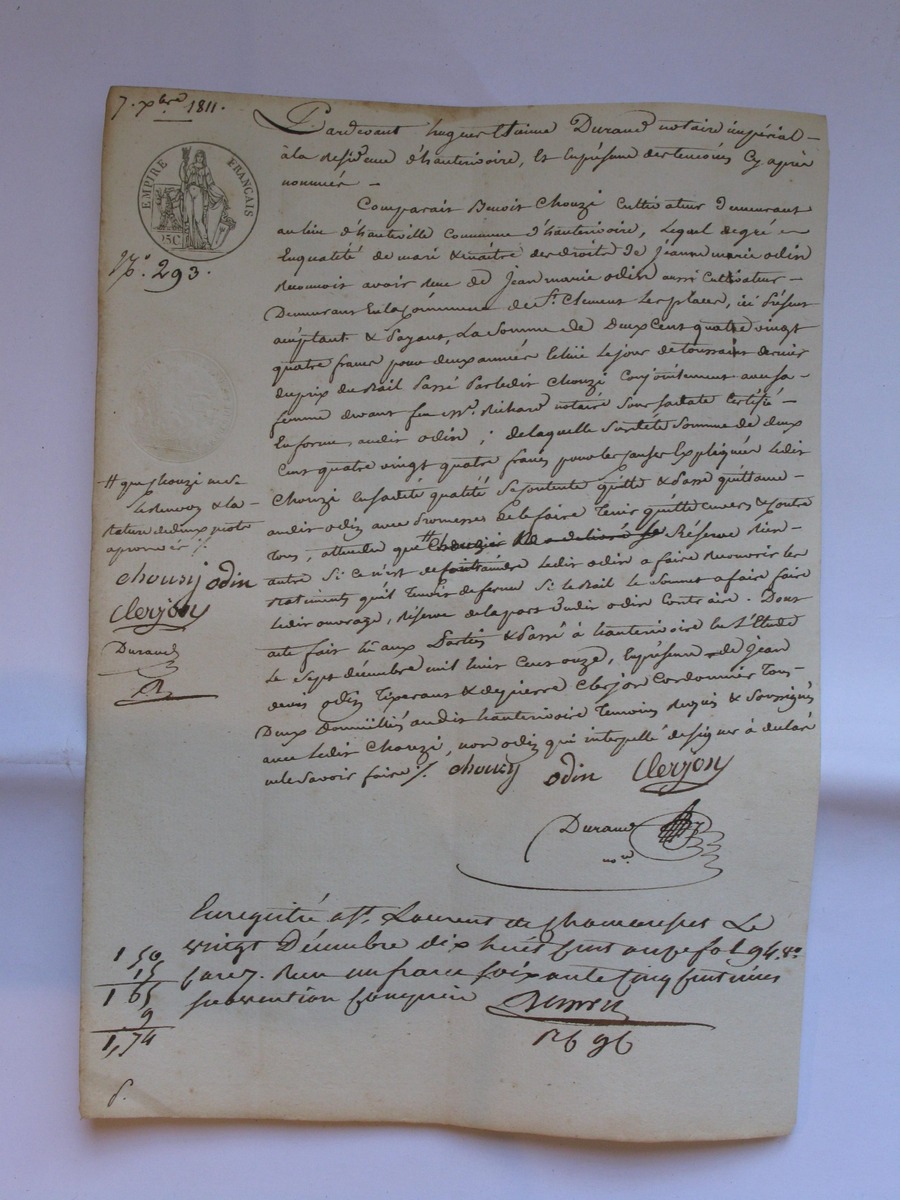 7. xbre 1811.
EMPIRE FRANÇAIS
25C
No. 293.
Pardevant hugues Etienne Durand notaire impérial
à la Residence d'hauterivoire, Et En présence des temoins Cy après
nommés
Comparait Benoit Chouzi Cultivateur demeurant
au lieu d'hauteville Commune d'hauterivoire, Lequel de gré
En qualité de mari & maitre des droits de Jeanne marie odin
Reconnoit avoir Recu de Jean marie odin aussi Cultivateur
Demeurant En la Commune de St. Clement les places, ici présent
acceptant & payant, La Somme de Deux Cent quatre vingt
quatre francs pour deux année Echüe le jour de toussaint dernier
du prix du Bail passé par ledit Chouzi Conjointement avec sa
femme devant feu Me. Richard notaire
En forme audit odin ; de laquelle Somme de deux
Cent quatre vingt quatre francs pour les Causes Expliquées ledit
Chouzi En sadite qualité Se Contente quitte & passe quittance
audit odin avec promesse de le faire Tenir quitte envers & Contre
Tous, attendu que Réserve Rien
autre Si ce n'est de Contraindre ledit odin a faire Recouvrir les
Batiments qu'il Tenoit de ferme Si le Bail le Soumet a faire faire
ledit ouvrage, Réserve de la part dudit odin Contraire. Dont
acte fait lu aux parties & passé à hauterivoire En L'Etude
Le Sept décembre mil huit Cent onze, En présence de Jean
denis odin Tisserant & de pierre Clerjon Cordonnier Tous
Deux Domiciliés audit hauterivoire Temoins Requis & Soussignés
avec ledit Chouzi, non odin qui interpellé de signer à declaré
ne le Savoir faire ./.
chouzy odin Clerjon
Durand
nore
# que chouzi ne Se
le Renvoy & la
Rature de deux mots
approuvés ./.
chouzy odin
Clerjon
Durand
Enregistré a St. Laurent de Chamousset Le
vingt Décembre dix huit Cent onze fol. 94 vo.
Case 7. Reçu un franc soixante Cinq Centimes
subvention Comprise
1 50
15
1 65
9
1,74